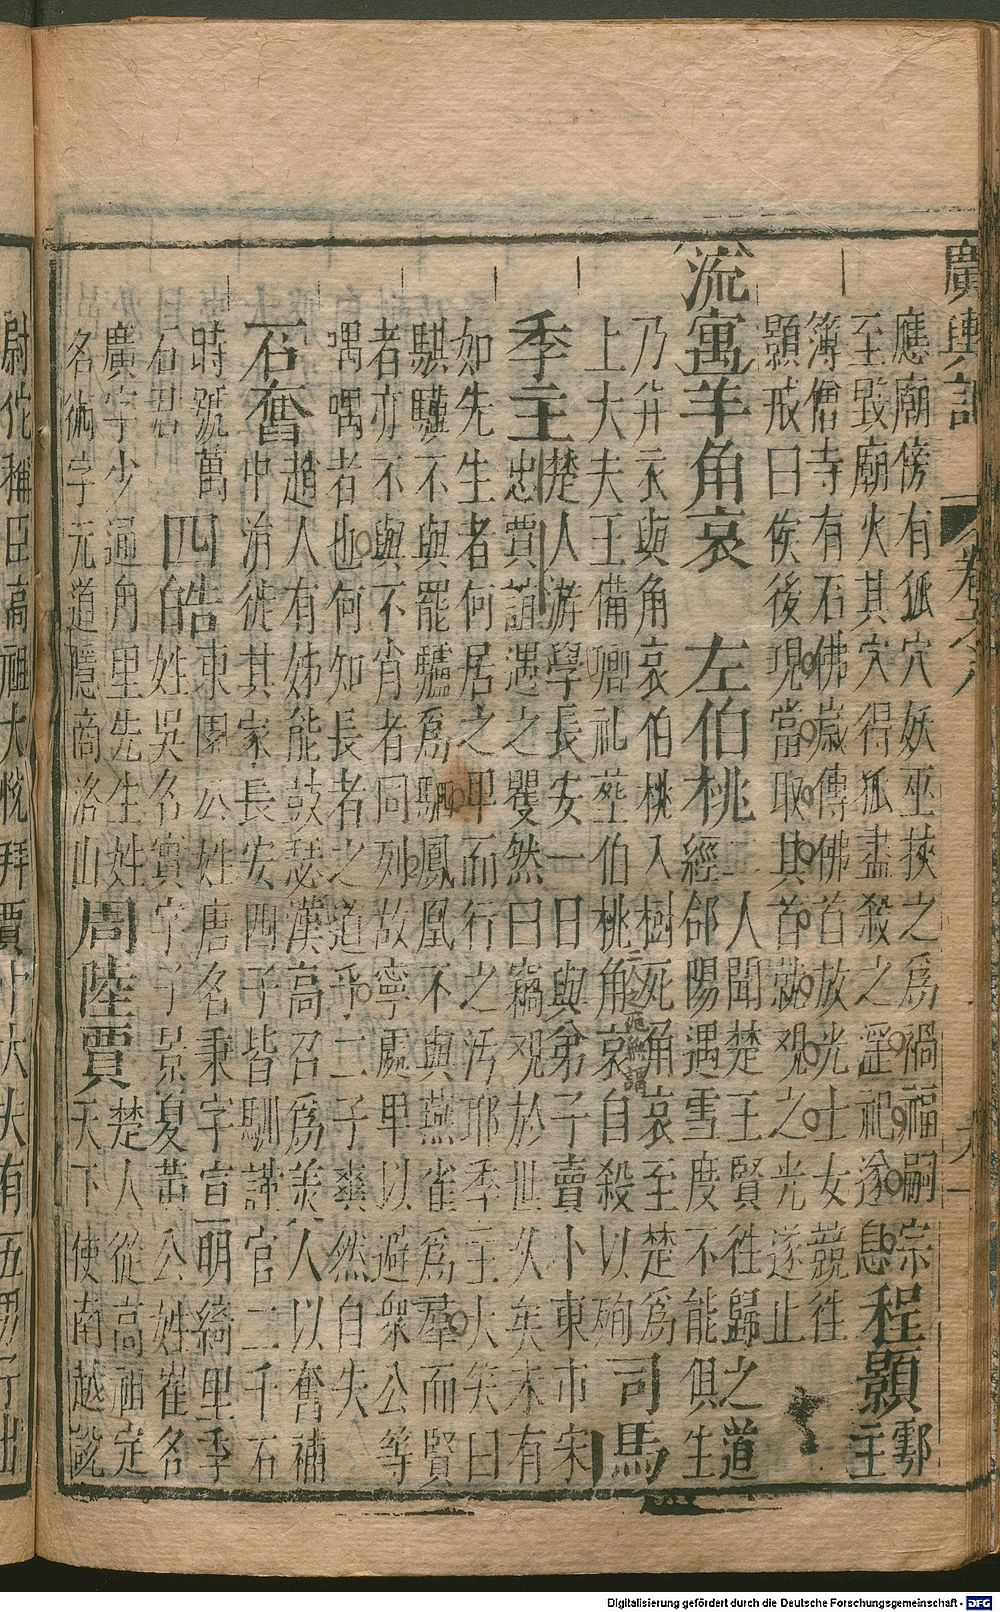 廣輿記 卷之八
應廟傍有狐穴妖巫挾之爲禍福嗣宗
至毀廟火其穴得狐盡殺之淫祀遂息 程顥 鄠
主
簿僧寺有石佛歲傳佛首放光士女競徃
顥戒曰俟後現當取其首就观之光遂止
流寓羊角哀 左伯桃 二人聞楚王賢徃歸之道
經郃陽遇雪度不能俱生
乃并衣與角哀伯桃入樹死角哀至楚爲
上大夫王備卿礼塟伯桃角哀自殺以殉 司馬
季主 楚人游學長安一日與弟子賣卜東市宋
忠賈誼遇之瞿然曰竊观於世久矣未有
如先生者何居之卑而行之汚耶季主大笑曰
騏驥不與罷驢爲駟鳳凰不與燕雀爲羣而賢
者亦不與不肖者同列故寧處卑以避衆公等
喁喁者也何知長者之道乎二子爽然自失
石奮 趙人有姊能鼓瑟漢高召爲美人以奮補
中涓徙其家長安四子皆馴謹官二千石
時號萬
石君 四皓 東園公姓唐名秉字宣明綺里季
姓吳名實字子景夏黃公姓崔名
廣字少通角里先生姓
名術字元道隱商洛山 周陸賈 楚人從高祖定
天下使南越說
尉佗稱臣高祖大悅拜賈中大夫有五男
Digitalisierung gefördert durch die Deutsche Forschungsgemeinschaft - DFG